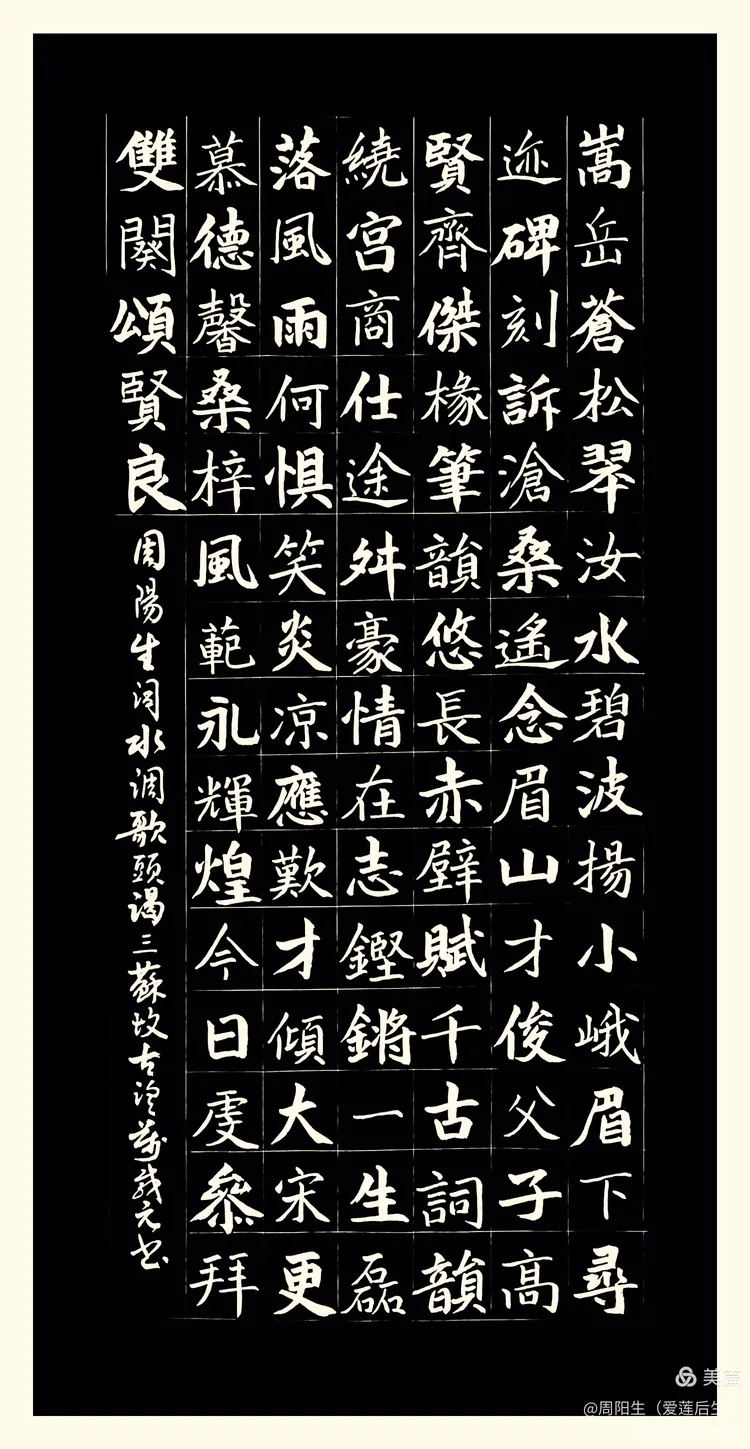 嵩岳蒼松翠汝水碧波揚小峨眉下尋
迹碑刻訴滄桑遙念眉山才俊父子高
賢齊傑椽筆韻悠長赤壁賦千古詞韻
繞宮商仕途舛豪情在志鏗鏘一生磊
落風雨何惧笑炎凉應歎才傾大宋更
慕德馨桑梓風範永輝煌今日虔參拜
雙闋頌賢良
周陽生詞水调歌頭謁三蘇坟古
书
美篇
@周阳生（爱莲后生